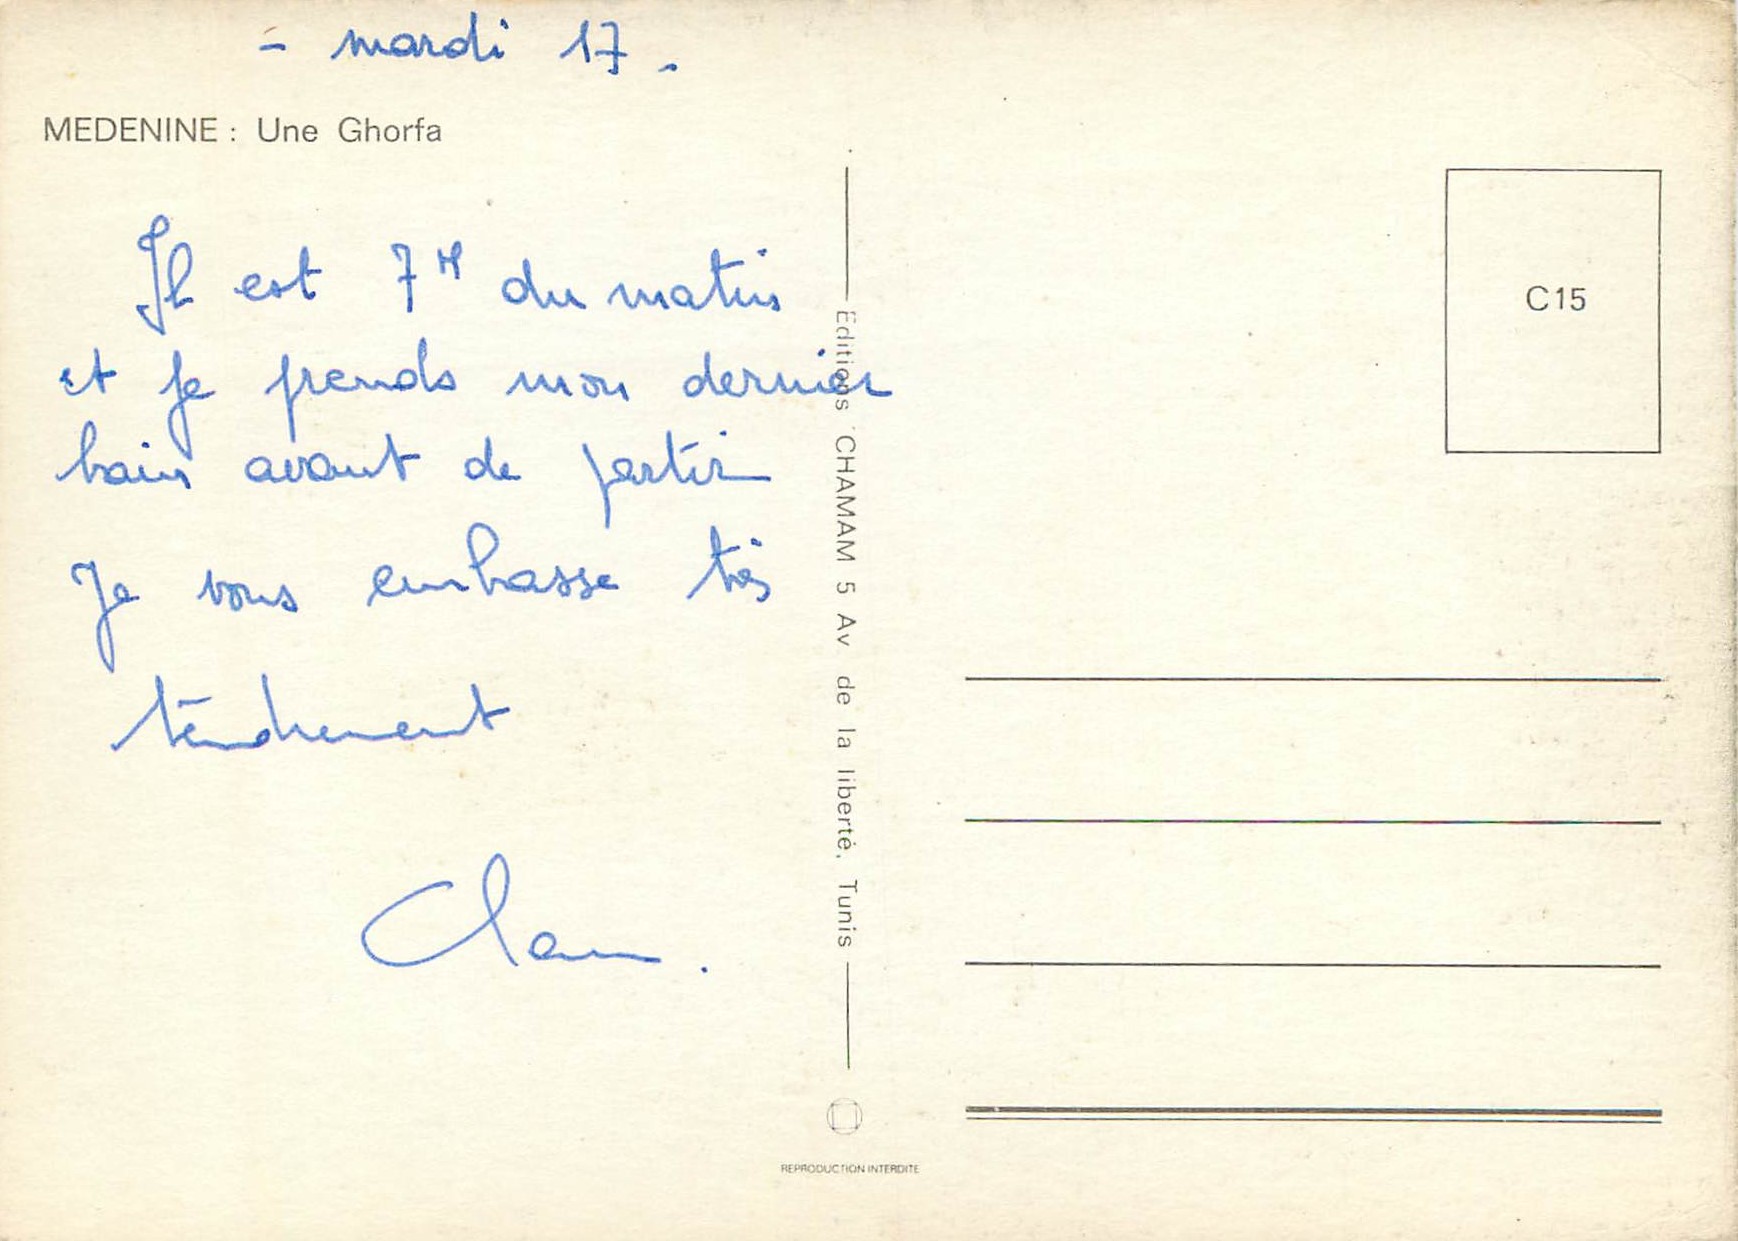 - mardi 17.
MEDENINE : Une Ghorfa
Il est 7H du matin
et je prends mon dernier
bain avant de partir
Je vous embrasse très
tendrement
C15
Editions CHAMAM 5 Av de la liberté, Tunis
REPRODUCTION INTERDITE